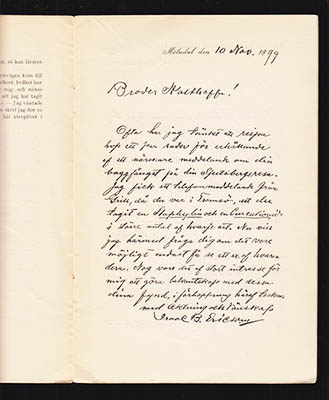 n, så kan läraren
envägen kom till
elkort, hvilket han
mig, och nämns
att jag har tagit
— Jag väntade
skref jag den 10
här återgifvet i
Mölndal den 10 Nov. 1899
Broder Kolthoff!
Ofta har jag tänkt
hop ett par rader för erhållande
af ett närmare meddelande om din
baggfångst på din Spitsbergsresa.
Jag fick ett telefonmeddelande från
Grill, då du var i Tromsö, att du
tagit en Staphylin och en Curculionid
i större antal af hvarje art. Nu ville
jag härmed fråga dig om det vore
möjligt endast få se ett ex. af hvar
dera. Nog vore det af stort intresse för
mig att göra bekantskap med dessa
dina fynd, i förhoppning härå tecknar
med Aktning och Vänskap
Isaac B. Ericson